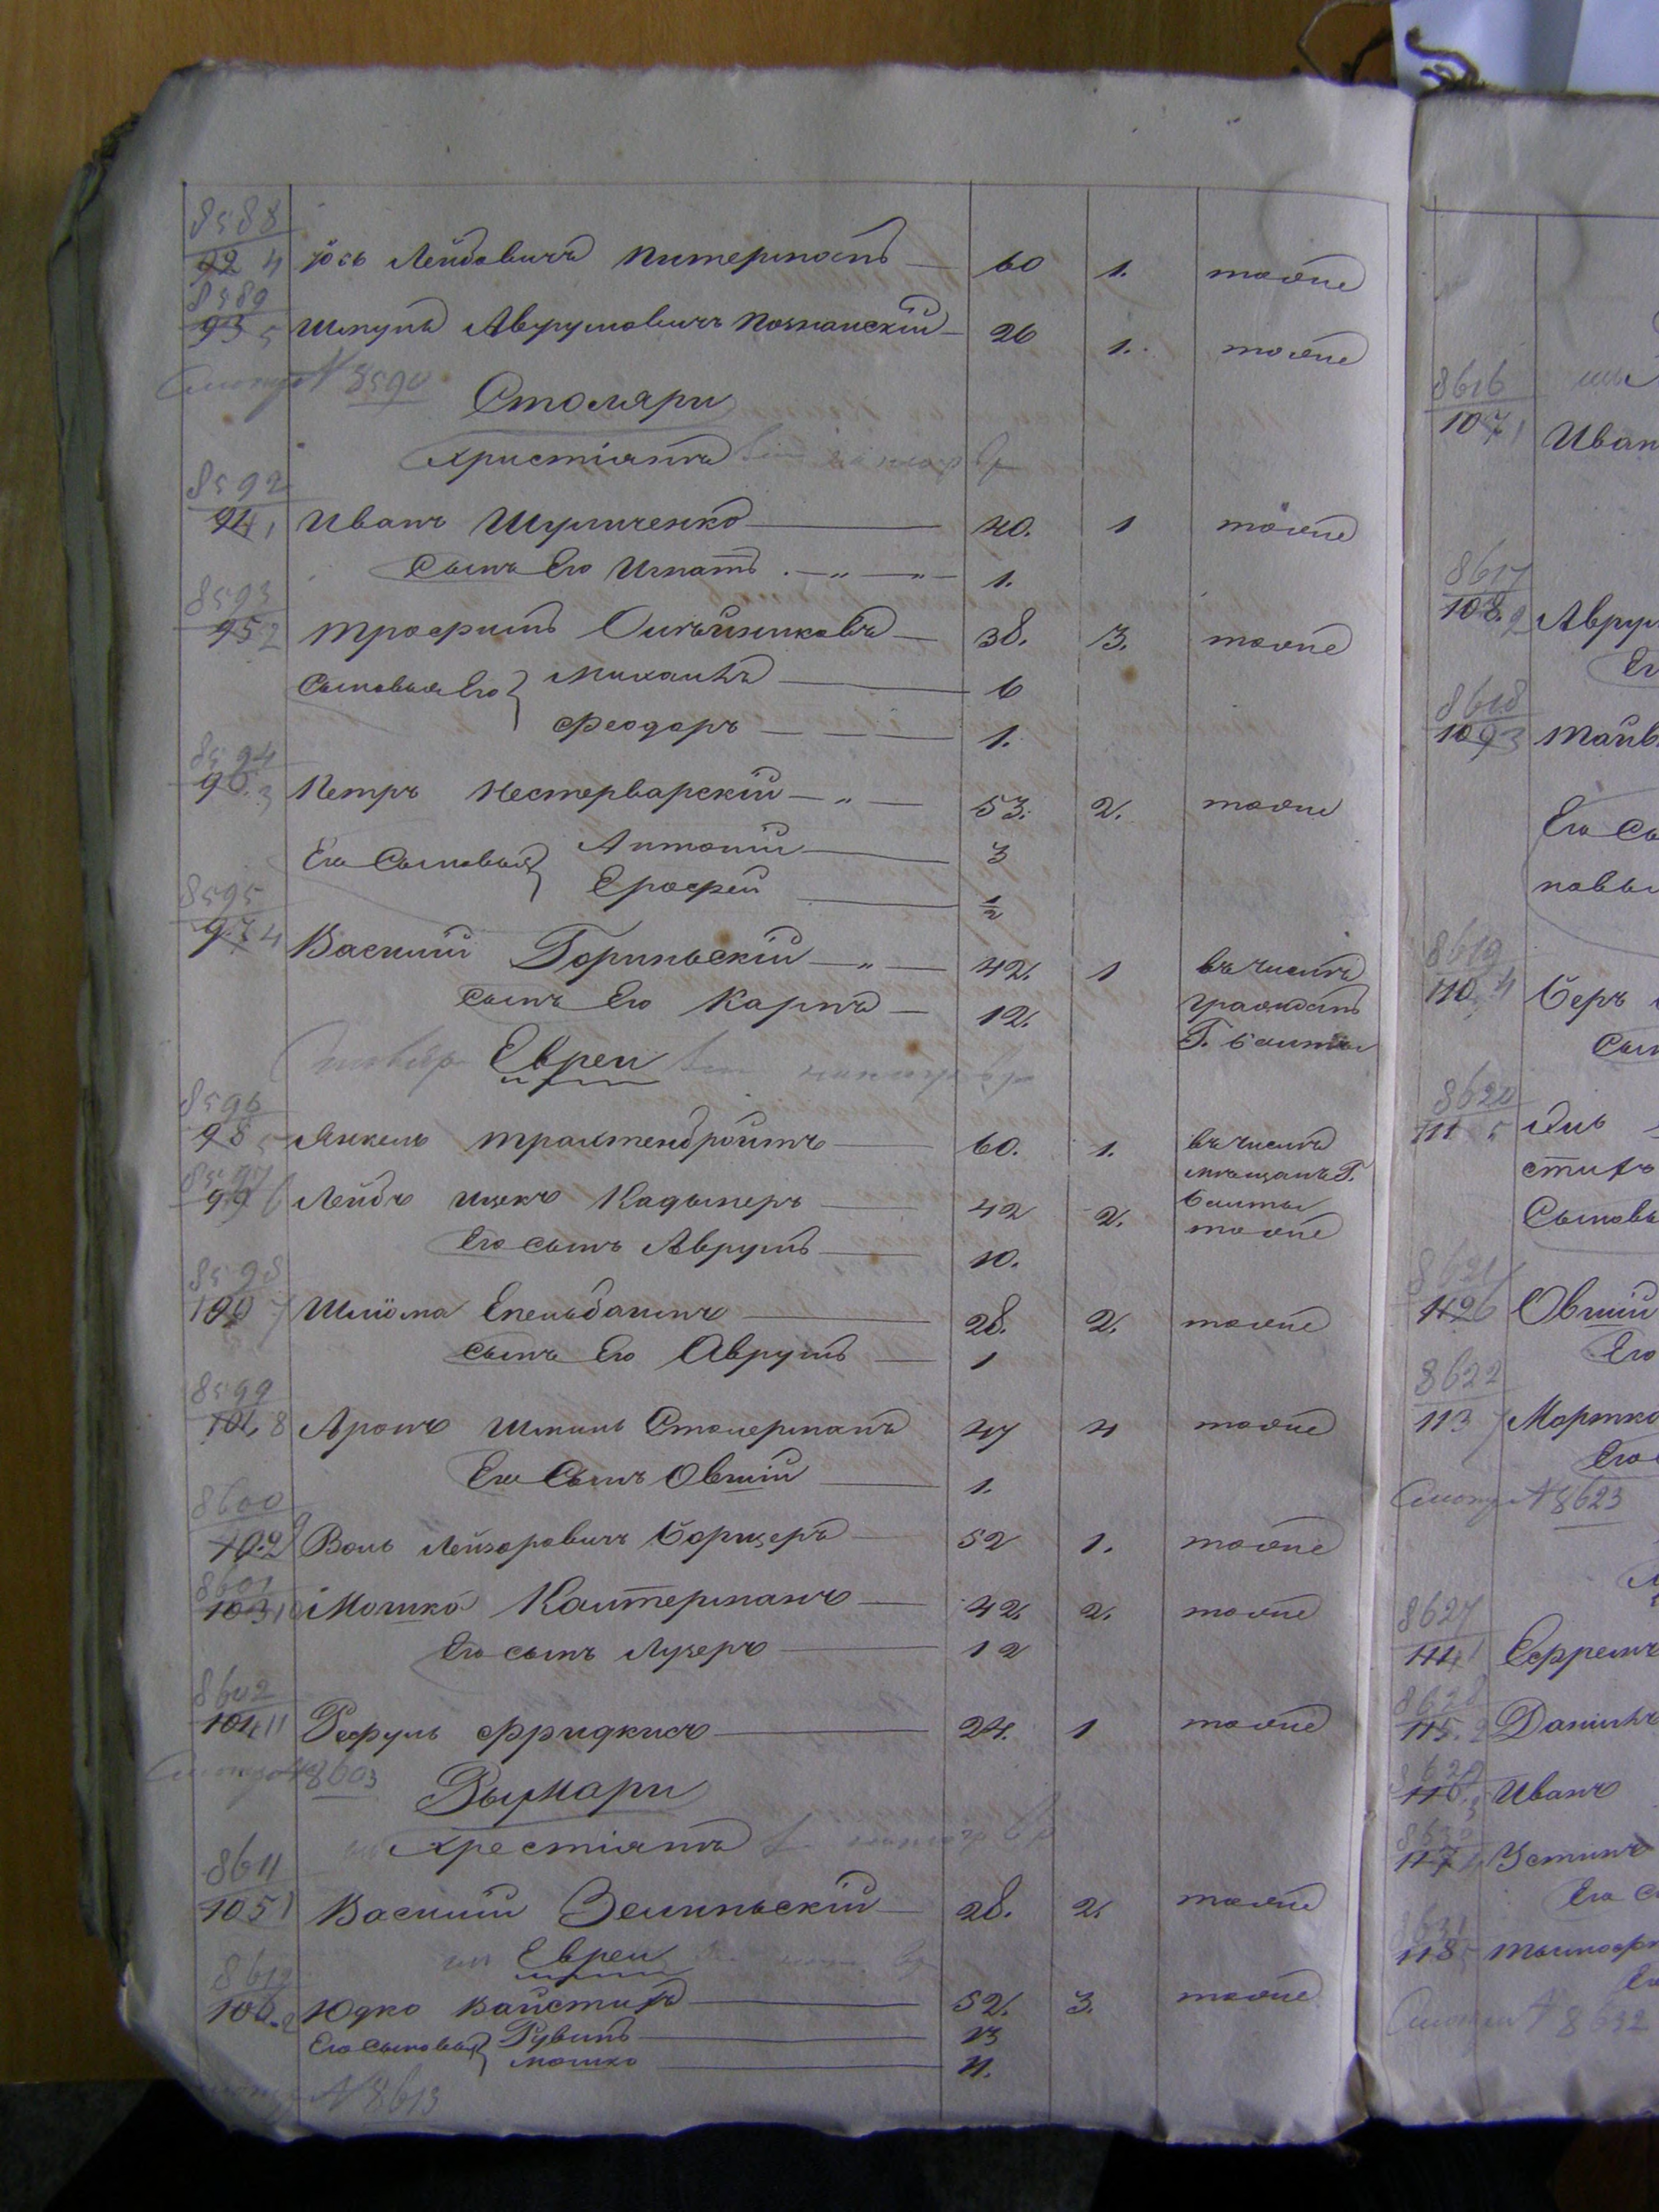 8588
92 4 Іось Лейбовичъ Питерманъ 60 1. тоже
8589
93 5 Шмуль Аврумовичъ Познанскій 26 1. тоже
Смотри N 8590
Столяри
Христіянъ
8592
94 1 Иванъ Шуличенко 40. 1 тоже
Сынъ Его Игнатъ 1.
8593
95 2 Трофимъ 38. 3. тоже
Сыновья Его Михаилъ 6
Феодоръ 1.
8594
96. 3 Петръ Нестерварскій 53. 2. тоже
Его Сыновья Антоній 3
Ерофей 1/2
8595
97 4 Василій Горинскій 42. 1 въ числѣ
сынъ Его Карпъ 12. гражданъ
Г. Балты
Евреи
8596
98 5 Янкель Трахтенбройтъ 60. 1. въ числѣ
мѣщанъ Г.
8597
99 6 Лейбъ Ицекъ Кадынеръ 42 2. Балты
тоже
Его сынъ Аврумъ 10.
8598
100 7 Шліома Епельбаимъ 28. 2. тоже
Сынъ Его Аврумъ 1
8599
101. 8 Аронъ Шмиль Столерманъ 47 4 тоже
Его Сынъ Овший 1.
8600
102 9 Воль Лейзоровичъ Борщеръ 52 1. тоже
8601
103 10 Мошко Кантерманъ 42. 2. тоже
Его сынъ Лузеръ 12
8602
104 11 Рефуль Фридкисъ 24. 1 тоже
Смотри N 8603
Рымари
Хрестіянъ
8611
105 1 Василій Зелинскій 28. 2. тоже
Евреи
8612
106. 2 Юдко Вайстихъ 52. 3. тоже
Его сыновья Рувинъ 13
Мошко 11.
N 8613
8616
107 1 Иван
8617
108. 2 Аврум
Ег
8618
109 3
Его Сы
новья
8619
110. 4 Беръ
Сын
8620
111 5
стихъ
Сыновь
8621
112 6 Овший
Его
8622
113 7 Мортко
Его
Смотри N 8623
8627
114 1 Ефремъ
8628
115. 2 Данилъ
8629
116. 3 Иванъ
117 4 Устинъ
Его с
8631
118 5 Тимоф
Ег
Смотри N 8632